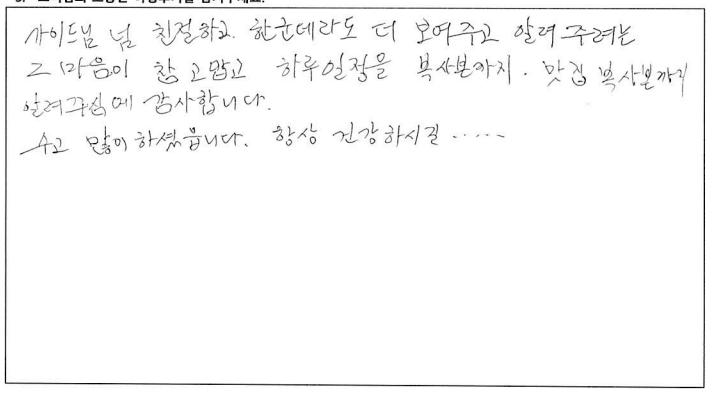 가이드님 넘 친절하고. 한군데라도 더 보여주고 알려주려는
그 마음이 참 고맙고 하루일정을 복사본까지. 맛집 복사본까지
알려주심에 감사합니다.
수고 많이 하셨읍니다. 항상 건강하시길 .....